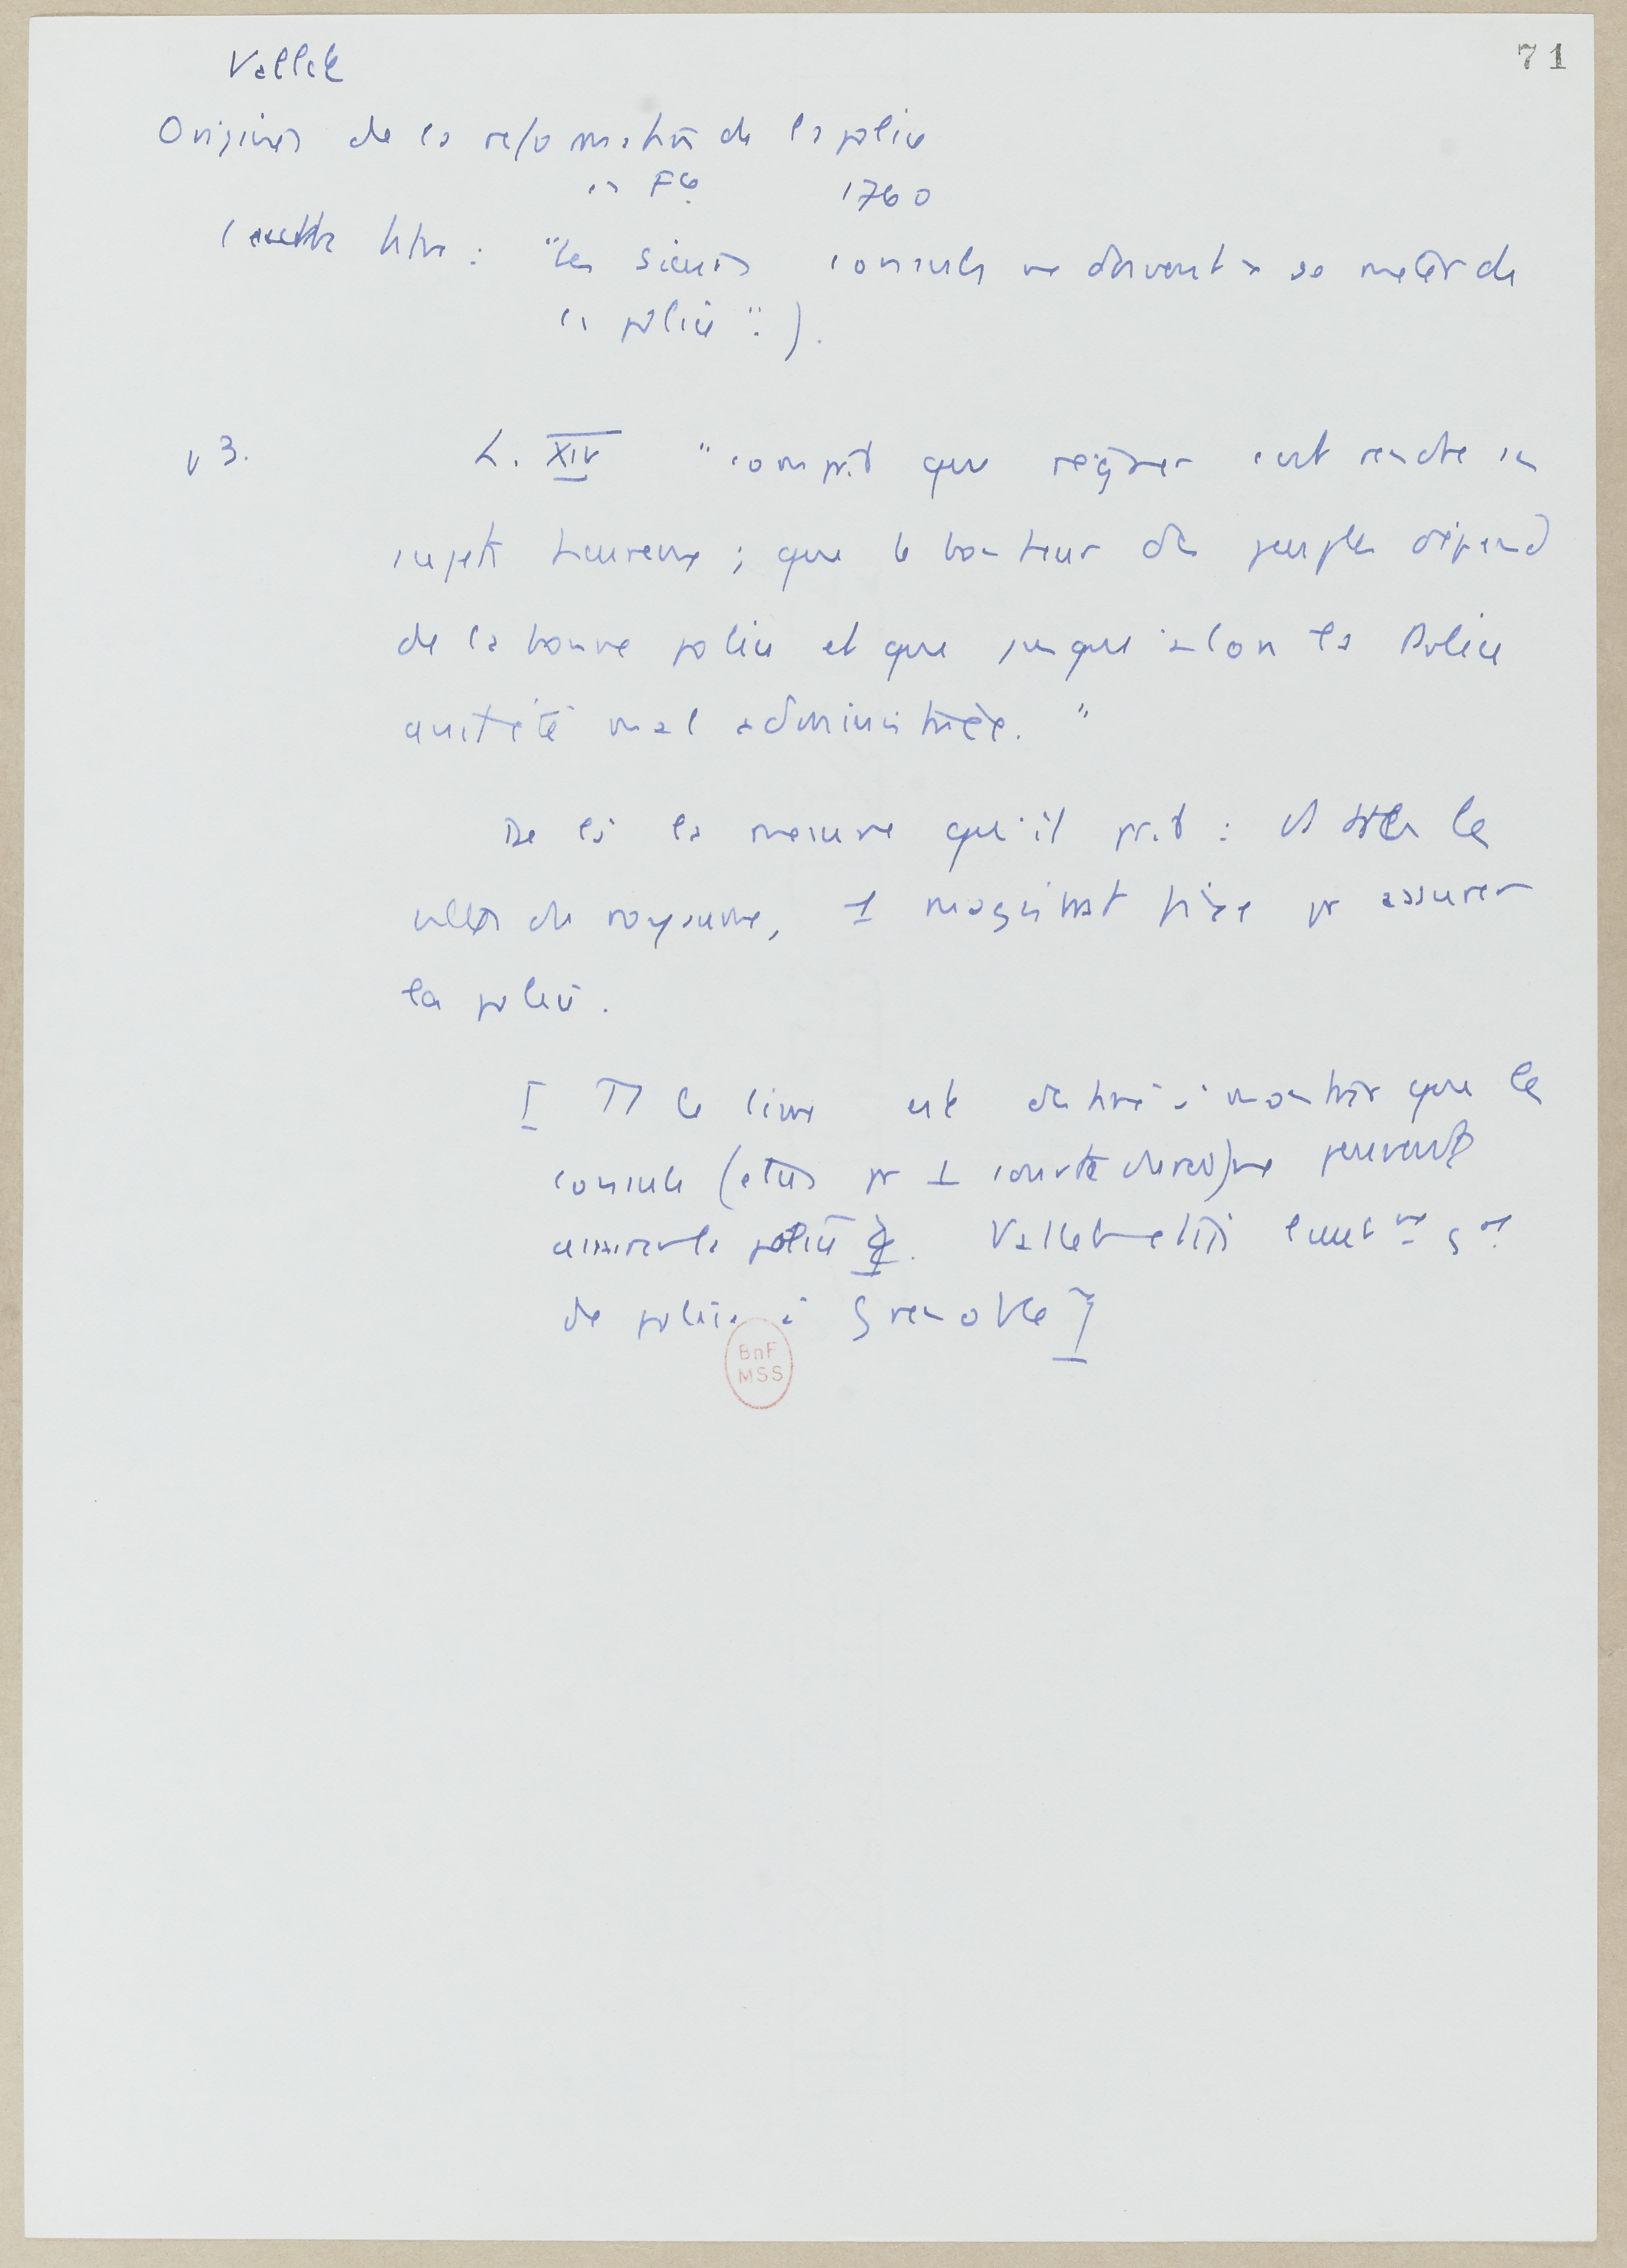 71
Vallet
Origines de la reformation de la police
in Fo. 1760
(autre titre : "les sieurs consuls ne doivent x se mêler de
la police".).
p 3. L. XIV "comprit que régner c'est rendre ses
sujets heureux ; que le bonheur des peuples dépend
de la bonne police et que jusqu'alon la Police
avait été mal administrée."
De là la mesure qu'il prit : ds ttes les
villes du royaume, 1 magistrat fixe pr assurer
la police.
[ Tt le livre est destiné à montrer que les
consuls (élus pr 1 courte durée) ne peuvent
assurer la police. Vallet était lieut
de police à Grenoble ]
BnF
MSS